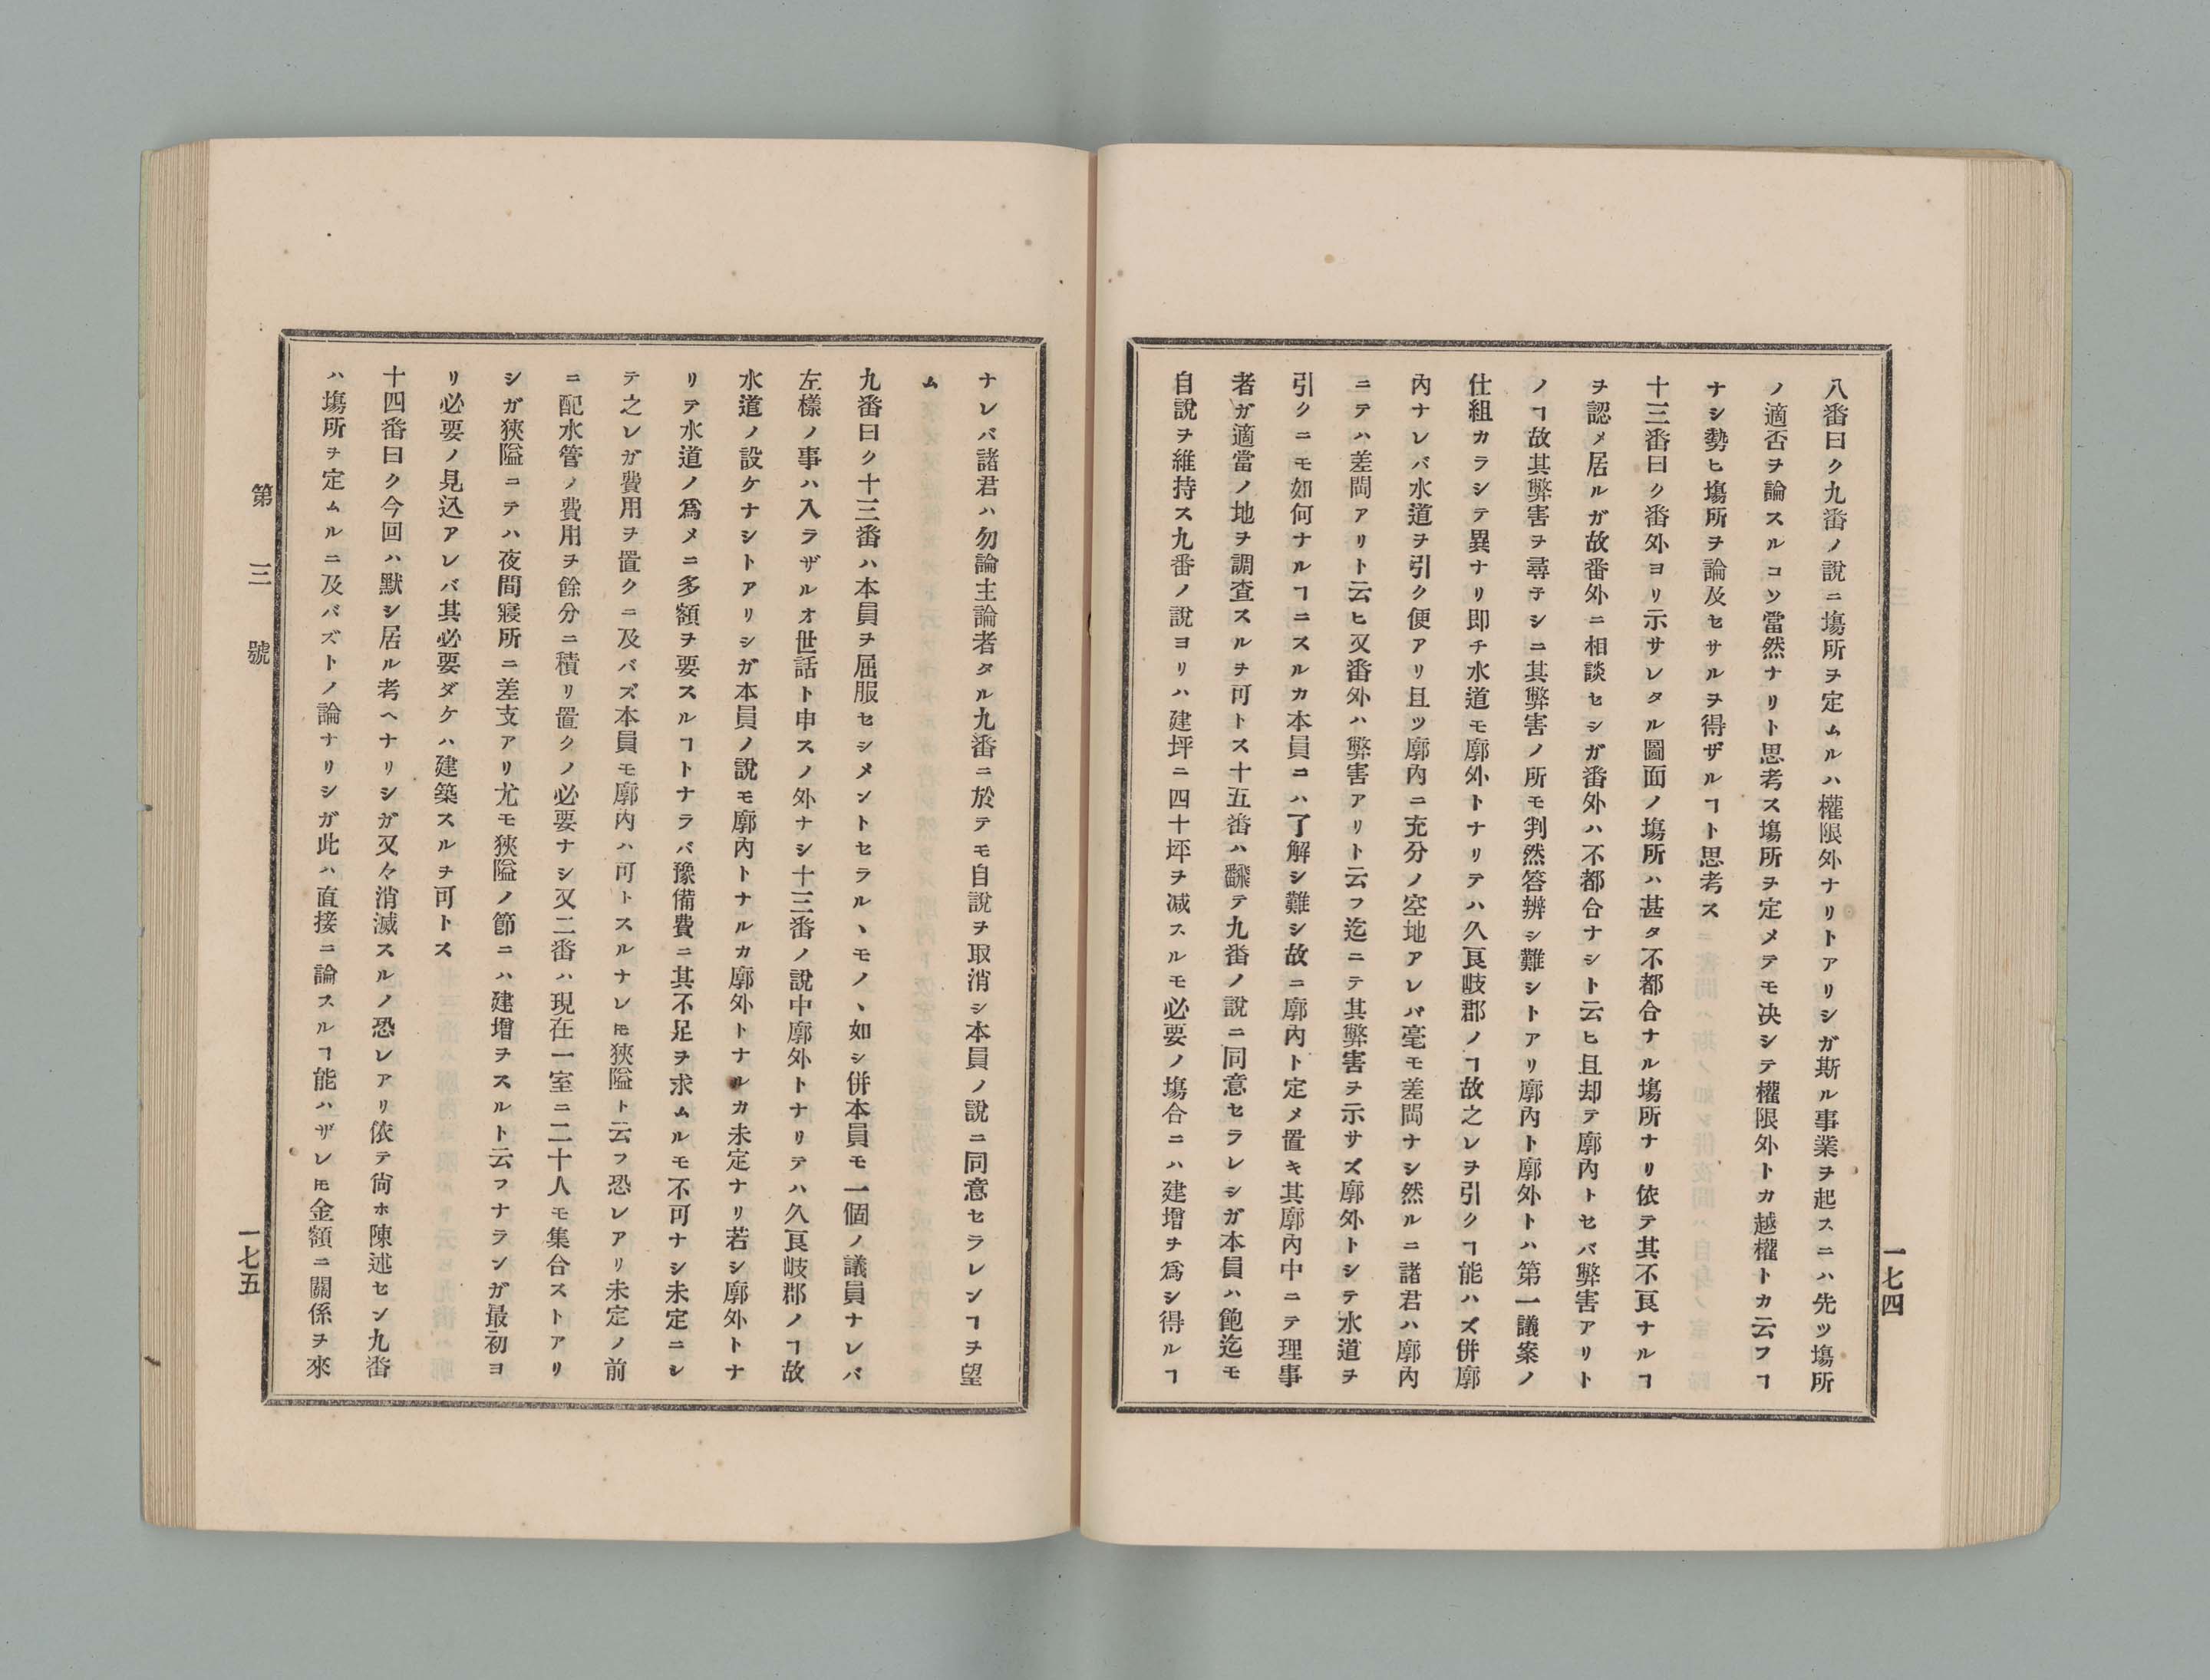 八番曰ク九番ノ說ニ塲所ヲ定ムルハ權限外ナリトアリシガ斯ル事業ヲ起スニハ先ツ塲所
ノ適否ヲ論スルコソ當然ナリト思考ス塲所ヲ定メテモ决シテ權限外トカ越權トカ云フヿ
ナシ勢ヒ塲所ヲ論及セサルヲ得ザルヿト思考ス
十三番曰ク番外ヨリ示サレタル圖面ノ塲所ハ甚タ不都合ナル塲所ナリ依テ其不良ナルヿ
ヲ認メ居ルガ故番外ニ相談セシガ番外ハ不都合ナシト云ヒ且却テ廓內トセバ弊害アリト
ノヿ故其弊害ヲ尋子シニ其弊害ノ所モ判然答辨シ難シトアリ廓內ト廓外トハ第一議案ノ
仕組カラシテ異ナリ即チ水道モ廓外トナリテハ久良岐郡ノヿ故之レヲ引クヿ能ハズ併廓
內ナレバ水道ヲ引ク便アリ且ツ廓內ニ充分ノ空地アレバ毫モ差問ナシ然ルニ諸君ハ廓內
ニテハ差問アリト云ヒ又番外ハ弊害アリト云フ迄ニテ其弊害ヲ示サズ廓外トシテ水道ヲ
引クニモ如何ナルヿニスルカ本員ニハ了解シ難シ故ニ廓內ト定メ置キ其廓內中ニテ理事
者ガ適當ノ地ヲ調査スルヲ可トス十五番ハ飜テ九番ノ說ニ同意セラレシガ本員ハ飽迄モ
自說ヲ維持ス九番ノ說ヨリハ建坪ニ四十坪ヲ減スルモ必要ノ塲合ニハ建增ヲ爲シ得ルヿ
一七四
ナレバ諸君ハ勿論主論者タル九番ニ於テモ自說ヲ取消シ本員ノ說ニ同意セラレンヿヲ望
ム
九番曰ク十三番ハ本員ヲ屈服セシメントセラルヽモノヽ如シ併本員モ一個ノ議員ナレバ
左樣ノ事ハ入ラザルオ世話ト申スノ外ナシ十三番ノ說中廓外トナリテハ久良岐郡ノヿ故
水道ノ設ケナシトアリシガ本員ノ說モ廓內トナルカ廓外トナルカ未定ナリ若シ廓外トナ
リテ水道ノ爲メニ多額ヲ要スルヿトナラバ豫備費ニ其不足ヲ求ムルモ不可ナシ未定ニシ
テ之レガ費用ヲ置クニ及バズ本員モ廓內ハ可トスルナレ𪜈狹隘ト云フ恐レアリ未定ノ前
ニ配水管ノ費用ヲ餘分ニ積リ置クノ必要ナシ又二番ハ現在一室ニ二十人モ集合ストアリ
シガ狹隘ニテハ夜間寢所ニ差支アリ尤モ狹隘ノ節ニハ建增ヲスルト云フナランガ最初ヨ
リ必要ノ見込アレバ其必要ダケハ建築スルヲ可トス
十四番曰ク今回ハ默シ居ル考ヘナリシガ又々消滅スルノ恐レアリ依テ尙ホ陳述セン九番
ハ塲所ヲ定ムルニ及バズトノ論ナリシガ此ハ直接ニ論スルヿ能ハザレ𪜈金額ニ關係ヲ來
第三號
一七五